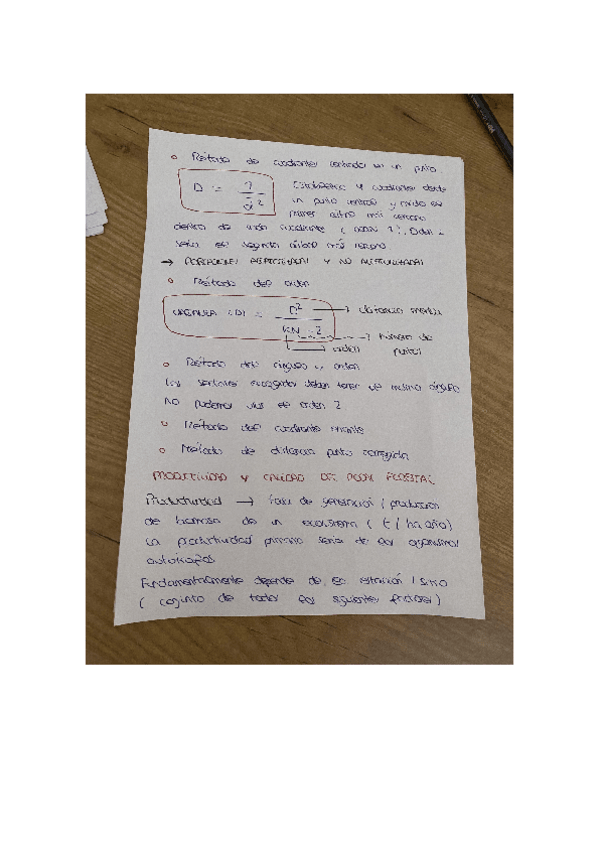 o Método de cuadrantes centrado en un punto
D = 1 / d̄²
Establecemos 4 cuadrantes desde
un punto central y mido el
primer árbol más cercano
dentro de cada cuadrante
sería el segundo árbol más cercano
→ POBLACIONES AGREGADAS Y NO AGREGADAS
o Método del orden
(D) = n² / KN - 2
→ distancia media
→ número de
orden puntos
o Método del ángulo y orden
Los sectores escogidos deben tener el mismo ángulo
No podemos usar el orden 2
o Método del cuadrante errante
o Método de distancia punto corregida
PRODUCTIVIDAD Y CALIDAD DEL FORESTAL
Productividad → tasa de generación / producción
de biomasa de un ecosistema ( t / ha año)
La productividad primaria sería de los organismos
autótrofos
Fundamentalmente depende de la estación / sitio
( conjunto de todos los siguientes factores)